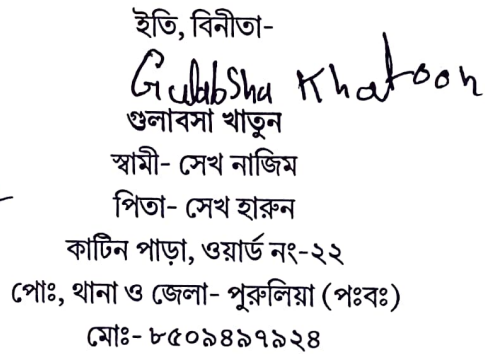 ইতি, বিনীতা-
Gulabsha Khatoon
গুলাবসা খাতুন
স্বামী- সেখ নাজিম
পিতা- সেখ হারুন
কাটিন পাড়া, ওয়ার্ড নং-২২
পোঃ, থানা ও জেলা- পুরুলিয়া (পঃবঃ)
মোঃ- ৮৫০৯৪৯৭৯২৪